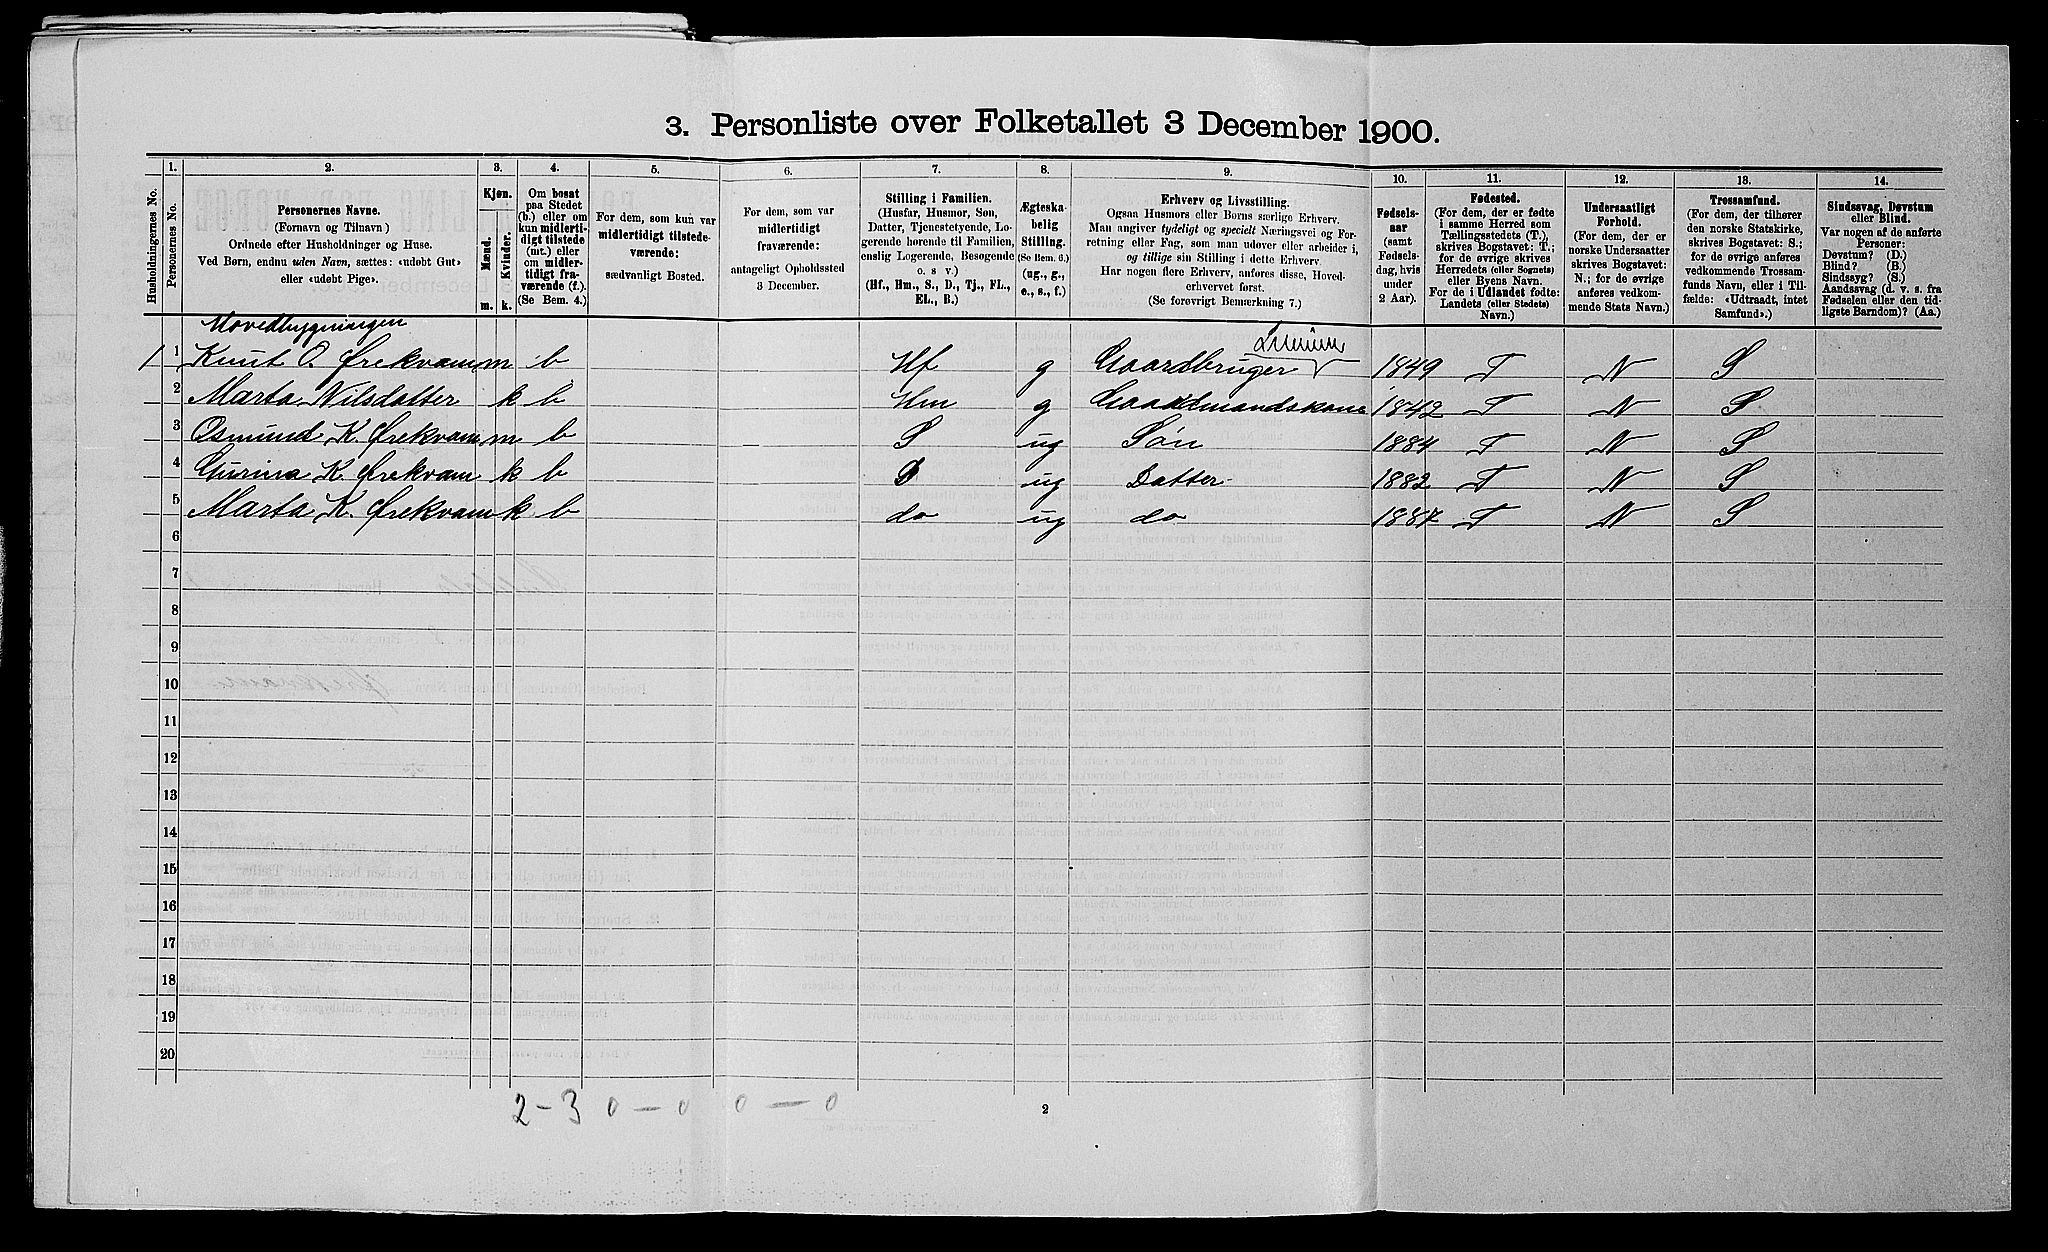 3. Personliste over Folketallet 3 December 1900.
1. 2. 3. 4. 5. 6. 7. 8. 9. 10. 11. 12. 13. 14.
Husholdningernes No.
Personernes No.
Personernes Navne.
(Fornavn og Tilnavn)
Ordnede efter Husholdninger og Huse.
Ved Børn, endnu uden Navn, sættes: «udøbt Gut»
eller «udøbt Pige».
Kjøn.
Mænd.
Kvinder.
m. k.
Om bosat
paa Stedet
(b.) eller om
kun midler-
tidigt tilstede
(mt.) eller
om midler-
tidigt fra-
værende (f.).
(Se Bem. 4.)
For dem, som kun var
midlertidigt tilstede-
værende:
sædvanligt Bosted.
For dem, som var
midlertidigt
fraværende:
antageligt Opholdssted
3 December.
Stilling i Familien.
(Husfar, Husmor, Søn,
Datter, Tjenestetyende, Lo-
gerende hørende til Familien,
enslig Logerende, Besøgende
o. s v.)
(Hf., Hm., S., D., Tj., FL.,
EL., B.)
Ægteska-
belig
Stilling.
(Se Bem. 6.)
(ug., g.,
e., s., f.)
Erhverv og Livsstilling.
Ogsaa Husmors eller Børns særlige Erhverv.
Man angiver tydeligt og specielt Næringsvei og For-
retning eller Fag, som man udøver eller arbeider i,
og tillige sin Stilling i dette Erhverv.
Har nogen flere Erhverv, anføres disse, Hoved-
erhvervet først.
(Se forøvrigt Bemærkning 7.)
Fødsels-
aar
(samt
Fødsels-
dag, hvis
under
2 Aar).
Fødested.
(For dem, der er fødte
i samme Herred som
Tællingsstedets (T.),
skrives Bogstavet: T.;
for de øvrige skrives
Herredets (eller Sognets)
eller Byens Navn.
For de i Udlandet fødte:
Landets (eller Stedets)
Navn.)
Undersaatligt
Forhold.
(For dem, der er
norske Undersaatter
skrives Bogstavet:
N.; for de øvrige
anføres vedkom-
mende Stats Navn.)
Trossamfund.
(For dem, der tilhører
den norske Statskirke,
skrives Bogstavet: S.;
for de øvrige anføres
vedkommende Trossam-
funds Navn, eller i Til-
fælde: «Udtraadt, intet
Samfund».)
Sindssvag, Døvstum
eller Blind.
Var nogen af de anførte
Personer:
Døvstum? (D.)
Blind? (B.)
Sindssyg? (S.)
Aandssvag (d. v. s. fra
Fødselen eller den tid-
ligste Barndom)? (Aa.)
Hovedbygningen
1 1 Knut O. Ørekvam m b Hf g Gaardbruger 1849 T N S
2 Marta Nilsdatter k b Hm g Gaardmandskone 1842 T N S
3 Osmund K. Ørekvam m b S ug Søn 1884 T N S
4 Gurina K. Ørekvam k b D ug Datter 1882 T N S
5 Marta K. Ørekvam k b do ug do 1887 T N S
6
7
8
9
10
11
12
13
14
15
16
17
18
19
20
2 – 3 0 – 0 0 – 0
2